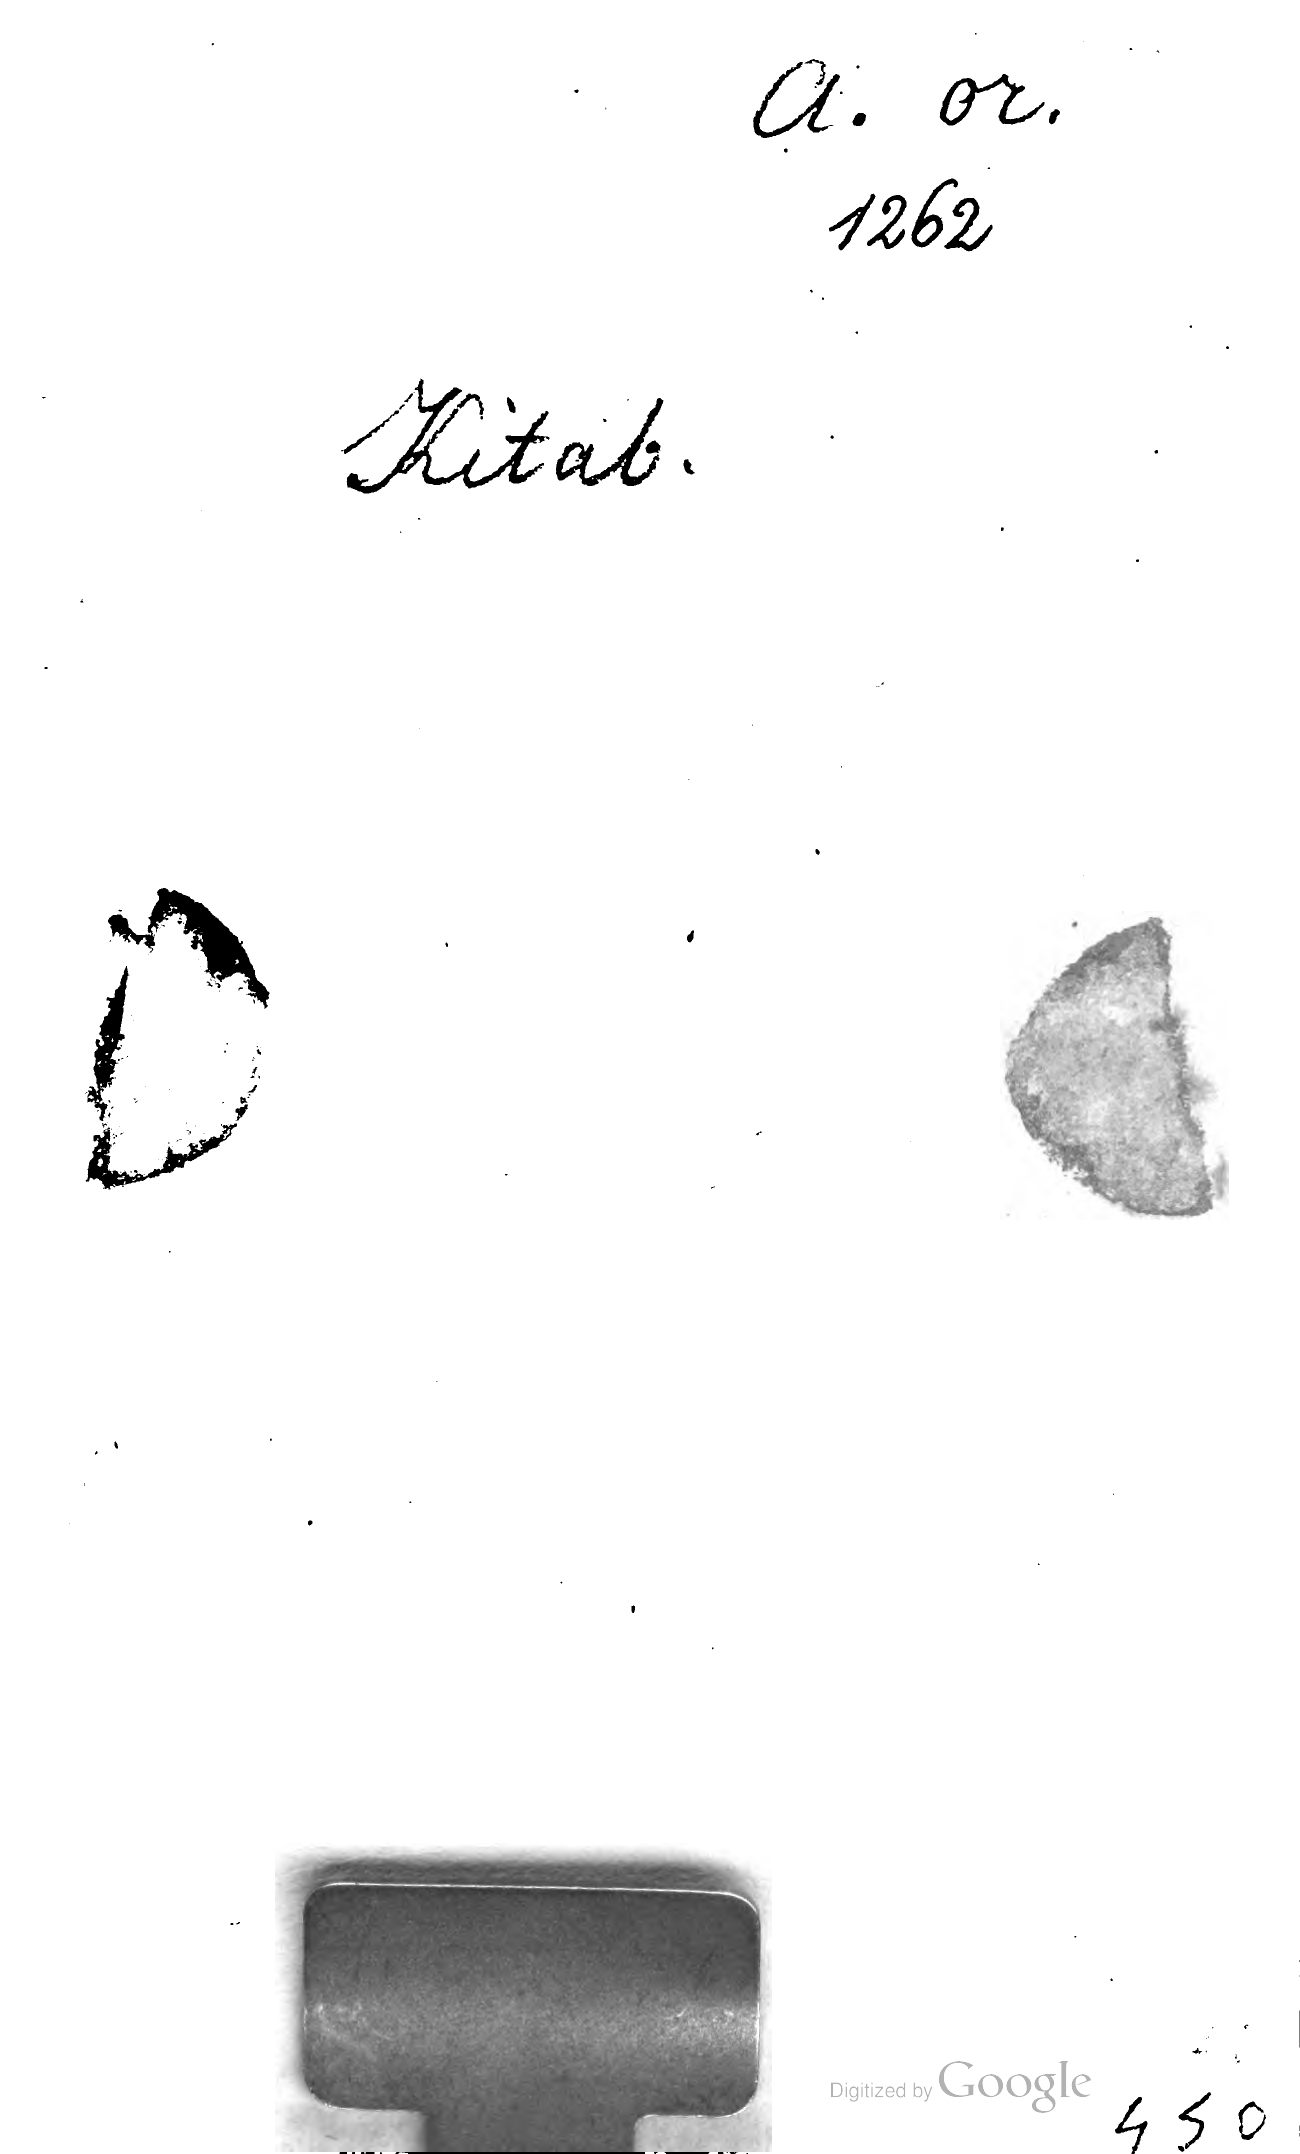 A. or.
1262
Kitab.
Digitized by Google
450